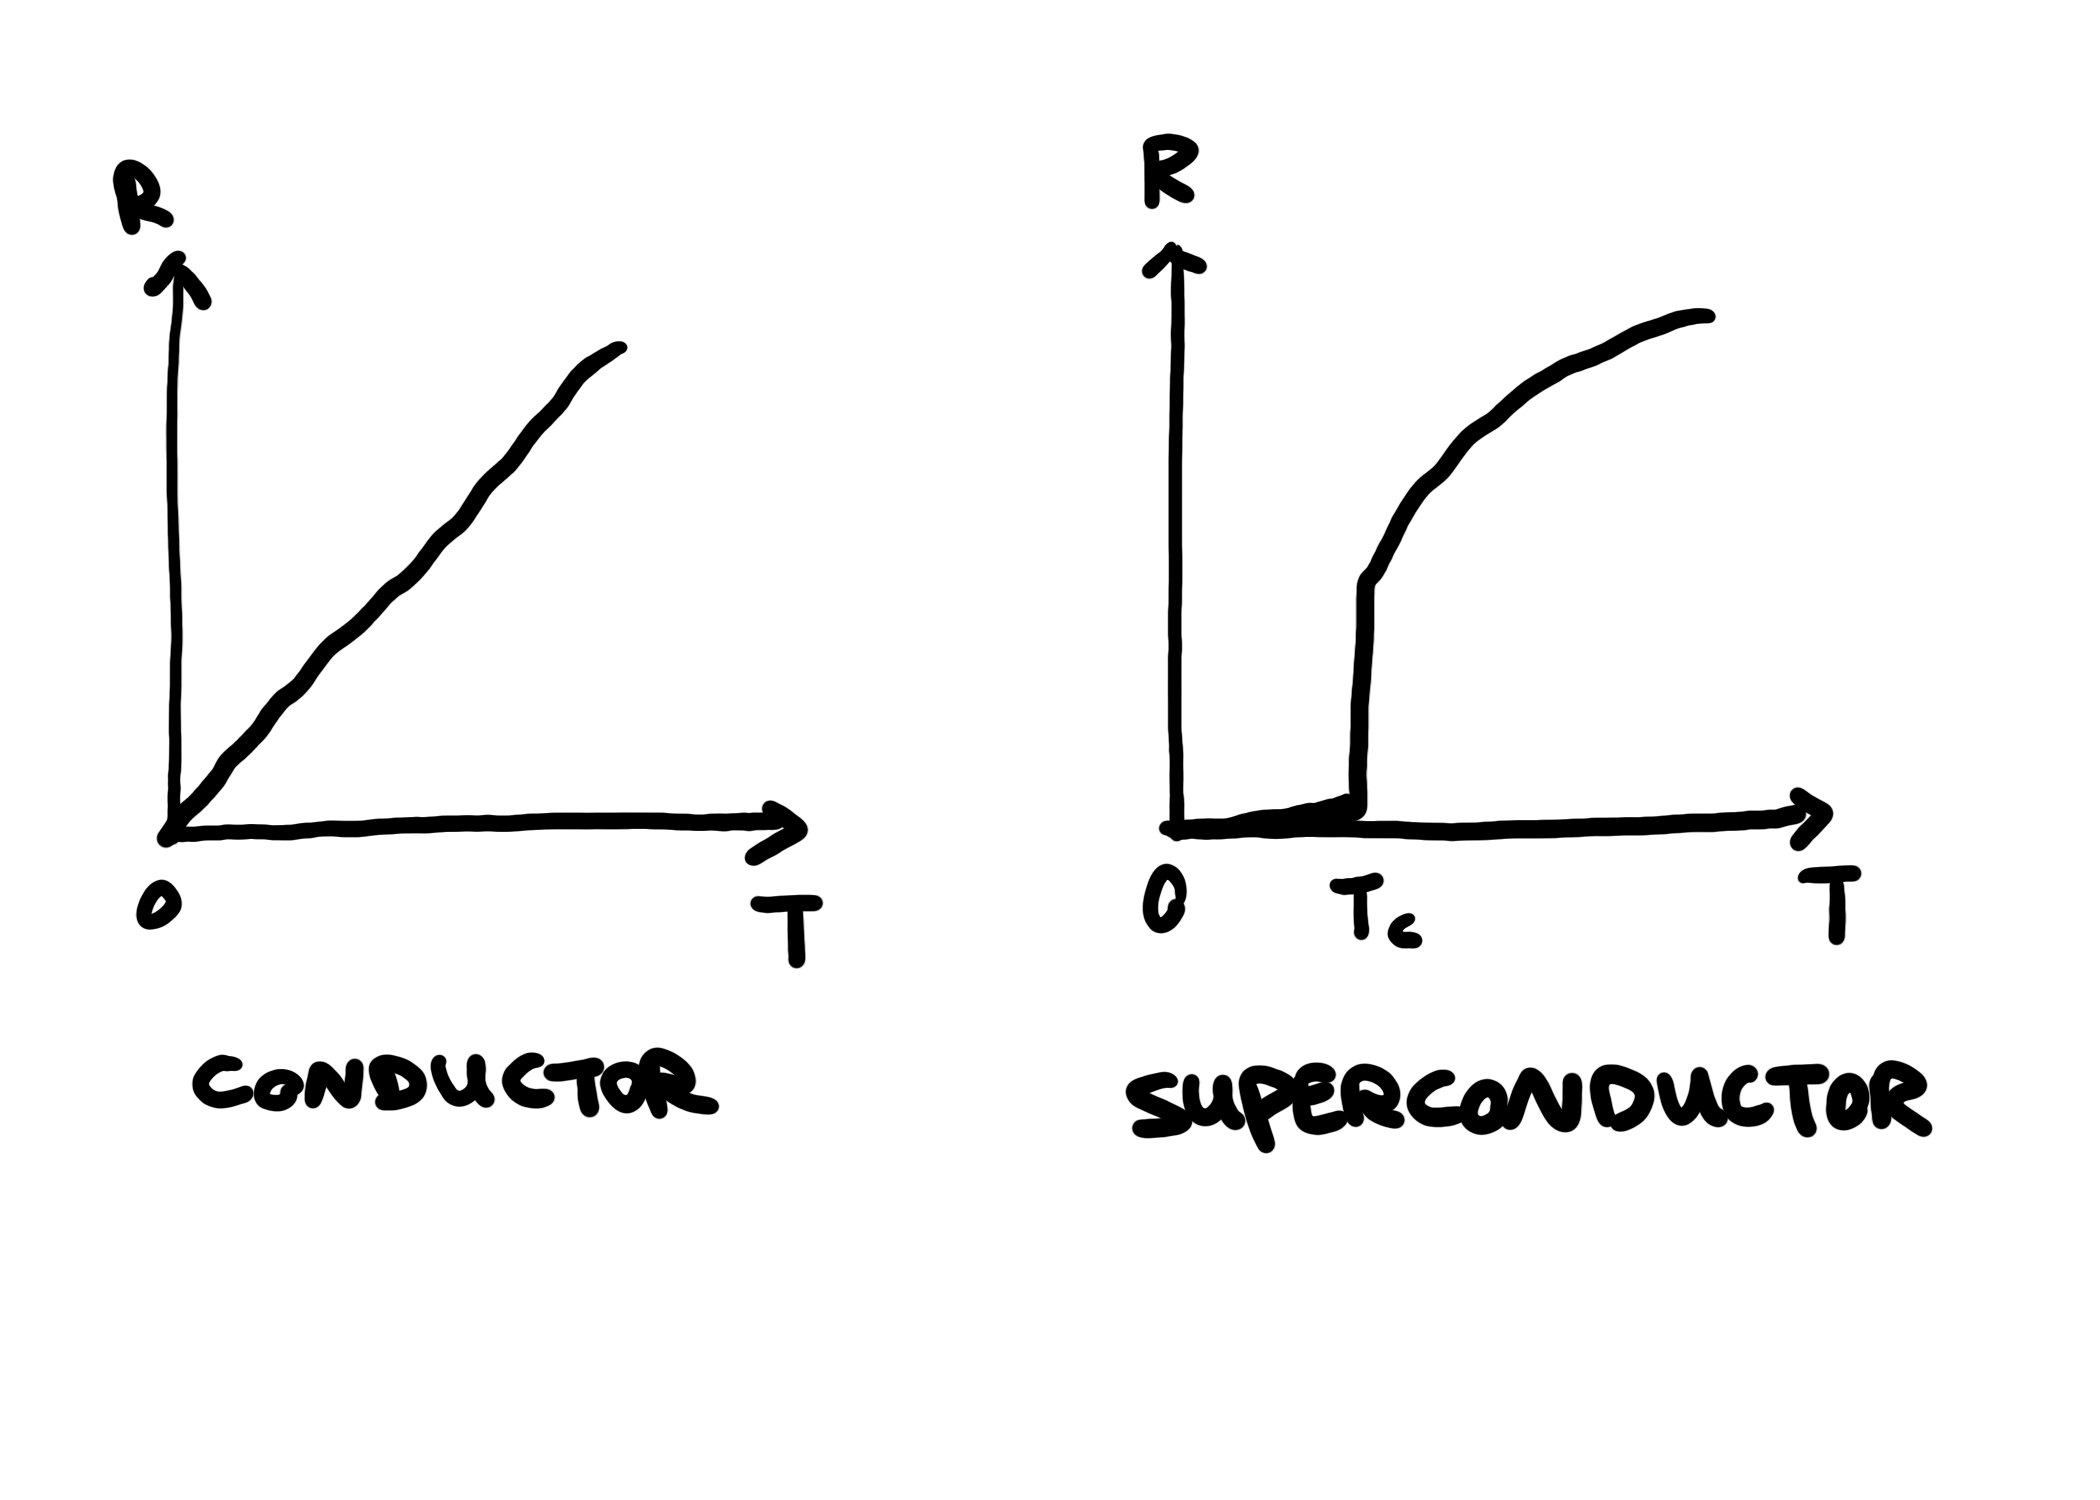 R
0
T
CONDUCTOR
R
0
Tc
T
SUPERCONDUCTOR